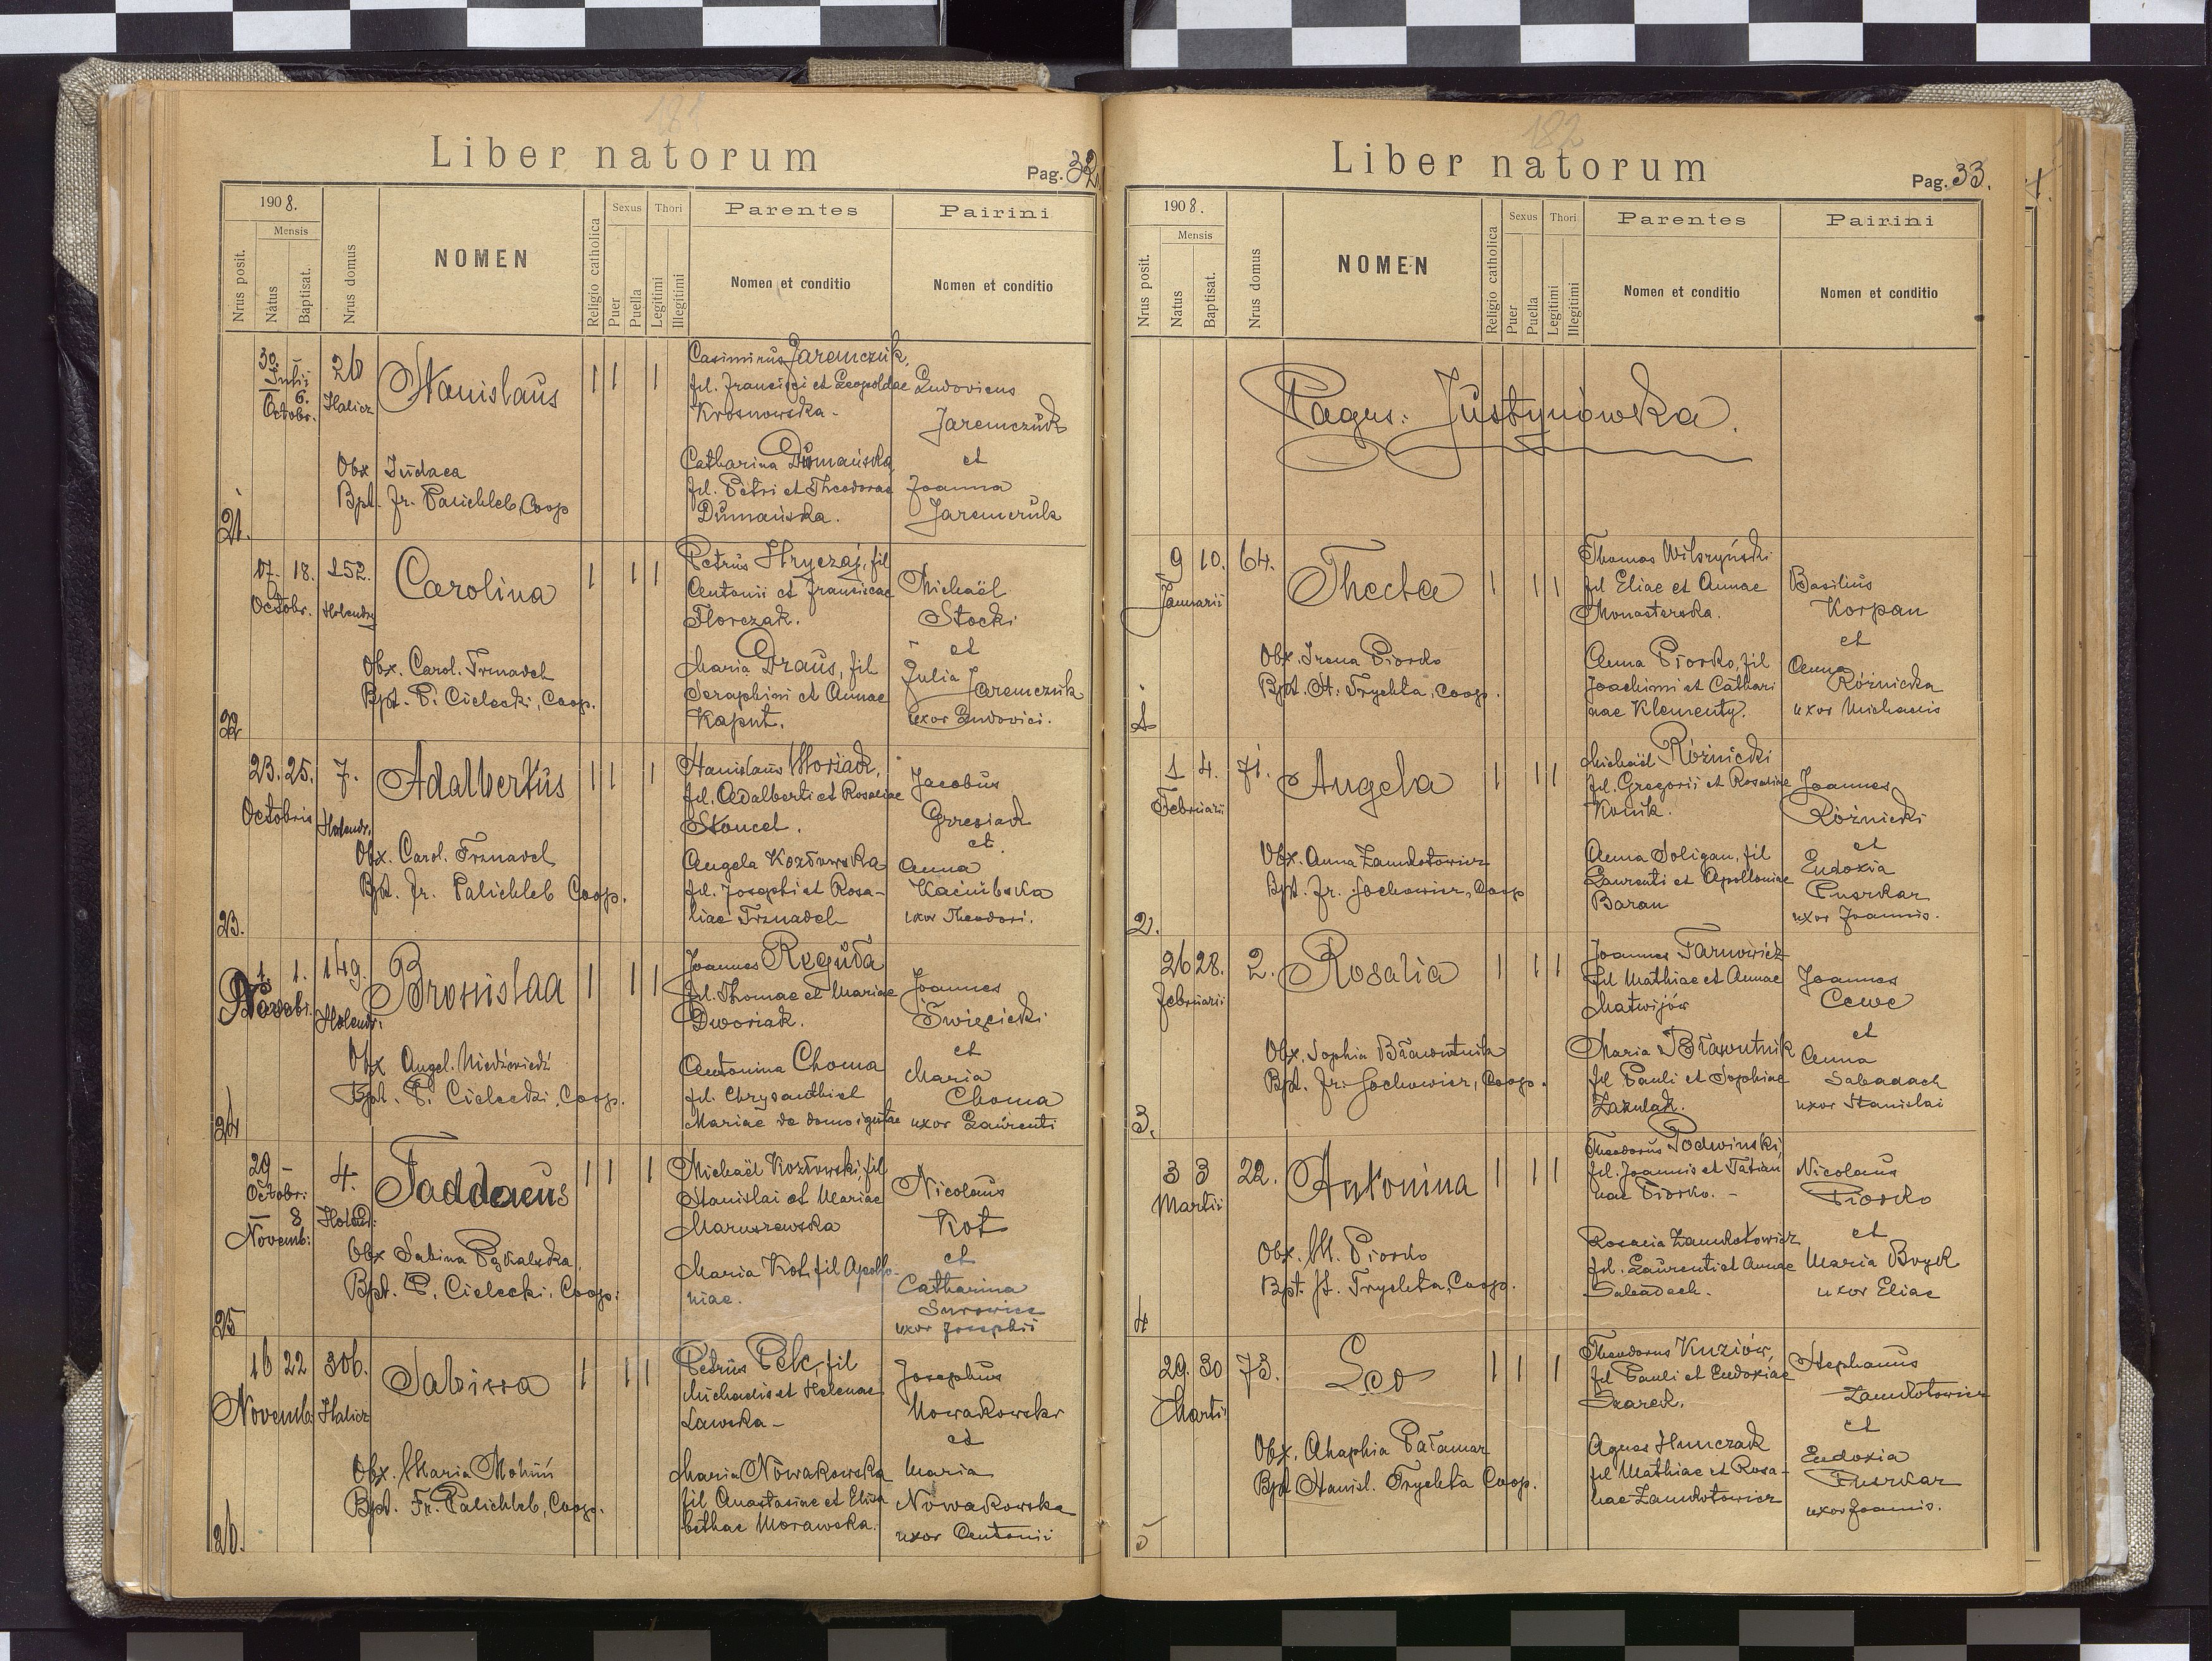 Liber natorum
Pag. 32
1908.
Mensis
Nrus posit.
Natus
Baptisat.
Nrus domus
NOMEN
Religio catholica
Sexus
Puer
Puella
Thori
Legitimi
Illegitimi
Parentes
Nomen et conditio
Pairini
Nomen et conditio
21.
30. Julii
6. Octobr.
Halicz
Stanislaus
Obx Judaea
Bpt. Fr. Palichleb, Coop
Casimirus Jaremczuk,
fil. Francisci et Leopoldae
Krosnowska.
Catharina Dumańska
fil. Petri et Theodorae
Dumańska.
Ludovicus
Jaremczuk
et
Joanna
Jaremczuk
22
17. 18. 152.
Octobr. Holendry
Carolina
Obx. Carol. Trznadel
Bpt. P. Cielecki, Coop.
Petrus Hryczaj, fil
Antonii et Franciscae
Florczak.
Maria Draus, fil
Seraphini et Annae
Kaput.
Michaël
Stocki
et
Julia Jaremczuk
uxor Ludovici.
23.
23. 25. 7.
Octobris Holendr.
Adalbertus
Obx. Carol. Trznadel
Bpt. Fr. Palichleb Coop.
Stanislaus Woźiak,
fil. Adalberti et Rosaliae
Stoncel.
Angela Kozłowska
fil. Josephi et Rosa-
liae Trznadel
Jacobus
Grzesiak
et
Anna
uxor Theodori.
24
1. 1. 149.
Holendr.
Bronislaa
Obx Angel. Niedźwiedź
Bpt. P. Cielecki, Coop.
Joannes Reguła
fil. Thomae et Mariae
Dworiak.
Antonina Choma
fil. Chrysanthi et
Mariae de domo ignotae
Joannes
Święcicki
et
Maria
Choma
uxor Laurenti
25
29 - 4.
Octobr:
- 8
Novemb:
Taddaeus
Obx Sabina
Bpt. P. Cielecki, Coop:
Michaël Kozłowski, fil
Stanislai et Mariae
Maruszewska
Maria Kot, fil Apollo-
niae.
Nicolaus
Kot
et
Catharina
Surowicz
uxor Josephi
26.
16 22 306.
Novemb: Halicz
Sabina
Obx. Maria
Bpt. Fr. Palichleb, Coop.
Petrus Pelc, fil
Michaelis et Helenae
Lawska -
Maria Nowakowska
fil Anastasiae et Elisa
bethae Morawska.
Josephus
Nowakowski
et
Maria
Nowakowska
uxor Antonii
182
Liber natorum
Pag. 33.
1908.
Mensis
Nrus posit.
Natus
Baptisat.
Nrus domus
NOMEN
Religio catholica
Sexus
Puer
Puella
Thori
Legitimi
Illegitimi
Parentes
Nomen et conditio
Pairini
Nomen et conditio
Pagus: Justynówka.
1
9 10. 64.
Januarii
Thecla
Obx. Irena Piorko
Bpt. St. Trychta, Coop.
Thomas Wilczyński
fil Eliae et Annae
Monasterska.
Anna Piorko, fil
Joachimi et Cathari
nae Klementy.
Basilius
Korpan
et
Anna
Różnicka
uxor Michaelis
2.
1 4. 71.
Februarii
Angela
Obx. Anna Zamkotowicz
Bpt. Fr. Jochowicz, Coop
Michaël Różnicki
fil. Gregorii et Rosaliae
Konik.
Anna Soligan, fil
Laurenti et Apolloniae
Baran
Joannes
Różnicki
et
Eudoxia
Puszkar
uxor Joannis.
3.
26 28. 2.
Februarii
Rosalia
Obx. Sophia Bławutnik
Bpt. Fr. Jochowicz, Coop.
Joannes Tarnowicz
fil Mathiae et Annae
Matwijów
Maria Bławutnik
fil Pauli et Sophiae
Zazulak.
Joannes
Cewe
et
Anna
Sabadach
uxor Stanislai
4
3 3 22.
Martii
Antonina
Obx. M. Piorko
Bpt. St. Trychta, Coop.
Theodorus Podwinski,
fil. Joannis et Tatian
nae Piorko. -
Rosalia Zamkotowicz
fil. Laurenti et Annae
Sabadach.
Nicolaus
Piorko
et
Maria Bryk
uxor Eliae
5
29. 30 73.
Martii
Leo
Obx. Ahaphia Pałamar
Bpt Stanisl. Trychta Coop.
Theodorus Kuziów,
fil Pauli et Eudoxiae
Szarek.
Agnes Hunczak
fil Mathiae et Rosa-
liae Zamkotowicz
Stephanus
Zamkotowicz
et
Eudoxia
Puszkar
uxor Joannis.